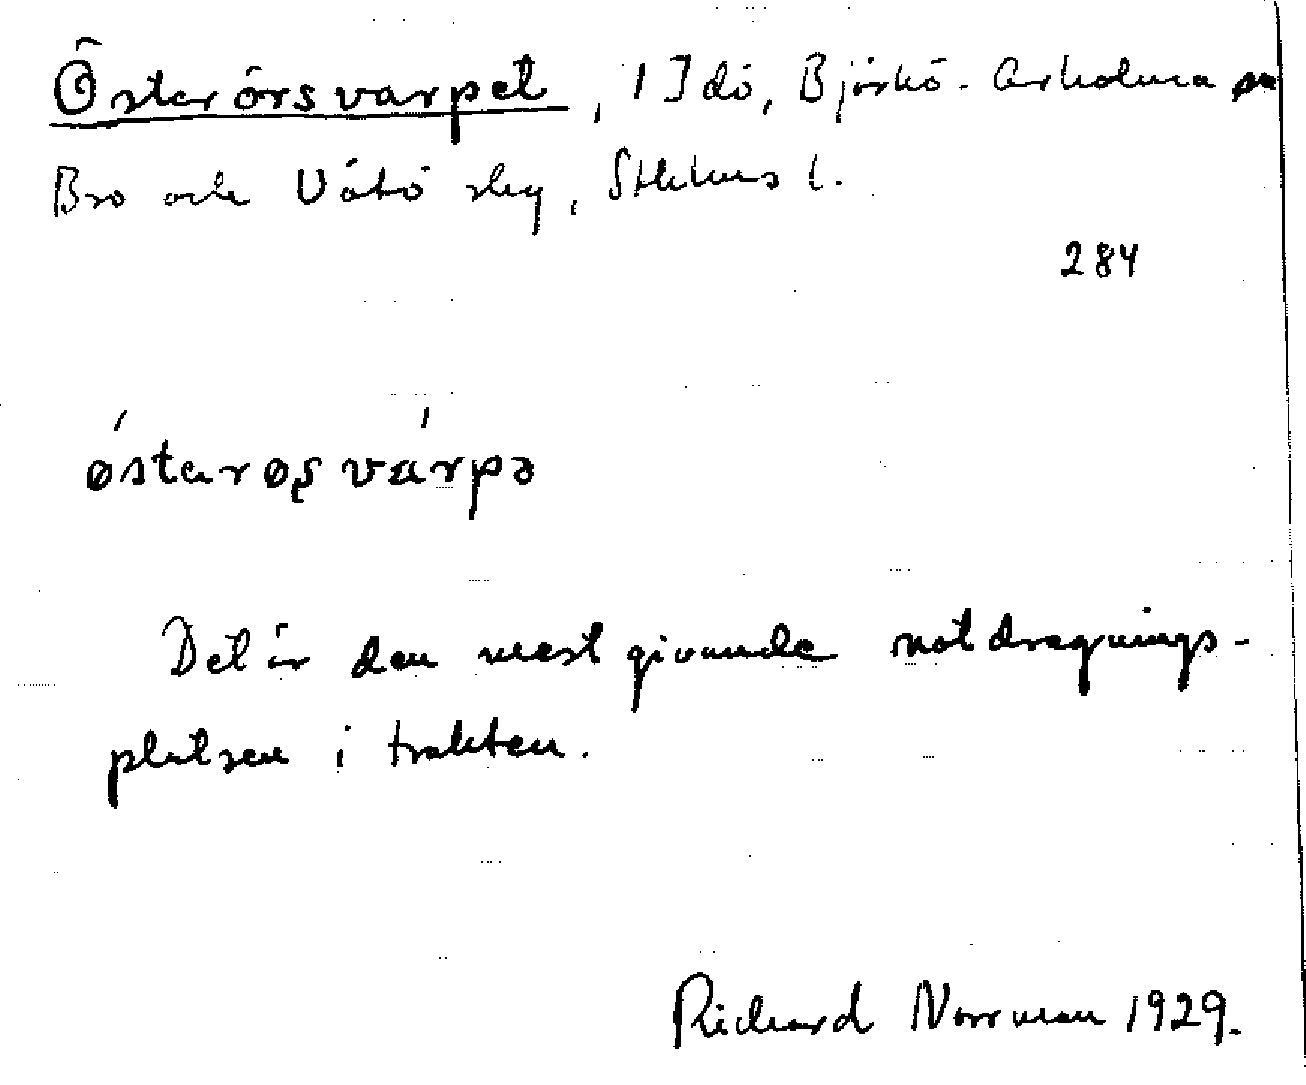 Österörsvarpet, 1 Idö, Björkö-Arholma sn
Bro och Vätö skg, Sthlms l.
284
ǿstarøʂ várpə
Det är den mest givande notdragnings-
platsen i trakten.
Richard Norrman 1929.